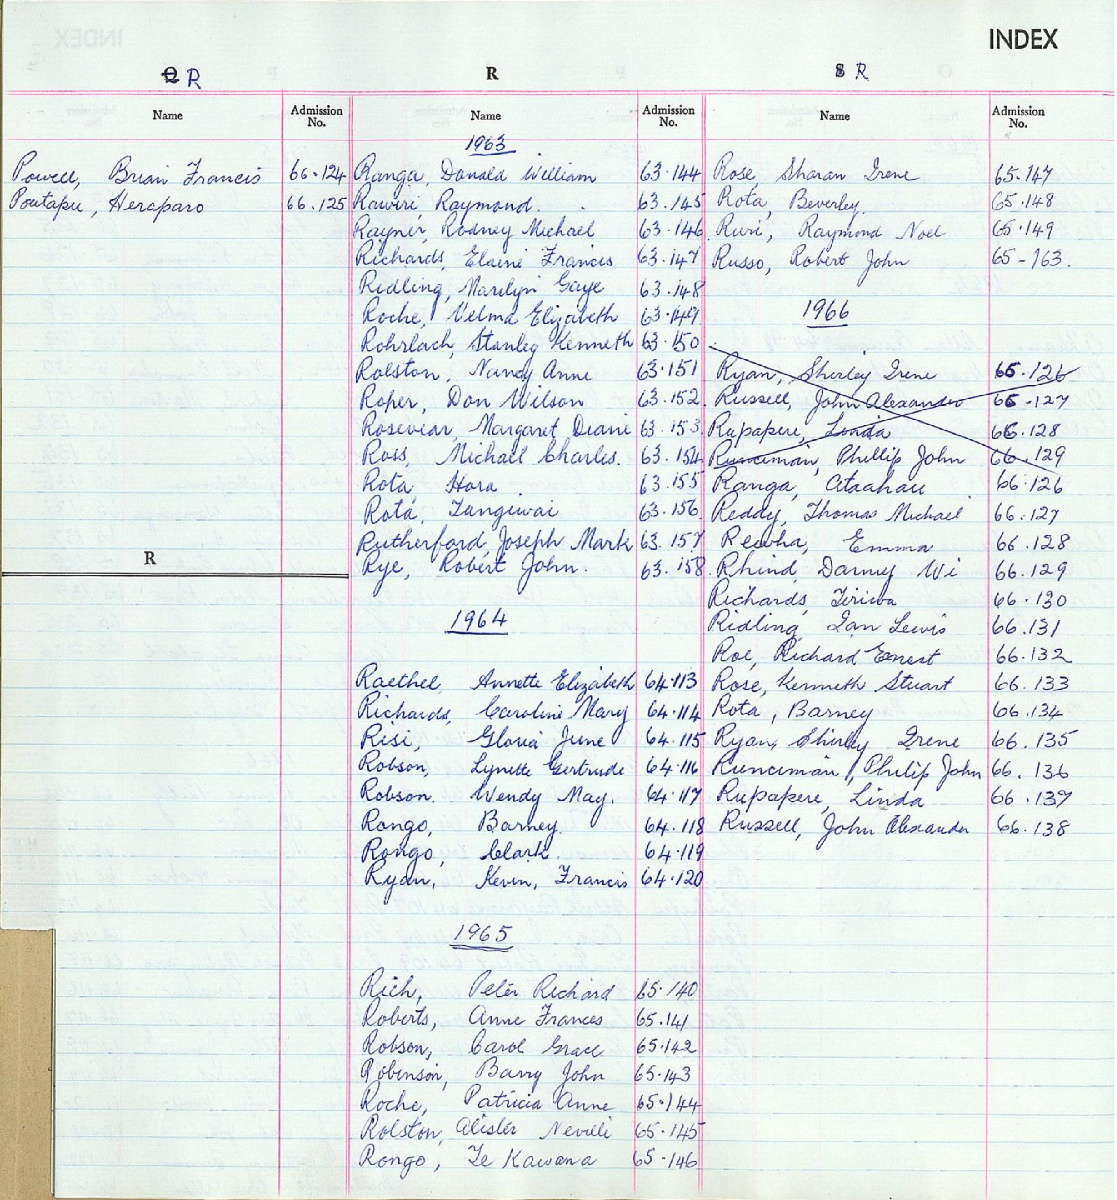 INDEX
Q R
Name Admission No.
Powell, Brian Francis 66.124
Poutapu, Heraparo 66.125
R
R
Name Admission No.
1963
Ranga, Donald William 63.144
Rawiri Raymond. 63.145
Rayner, Rodney Michael 63.146
Richards, Elaine Francis 63.147
Ridling, Marilyn Gaye 63.148
Roche, Velma Elizabeth 63.149
Rohrlach, Stanley Kenneth 63.150
Rolston, Nancy Anne 63.151
Roper, Don Wilson 63.152
Rosevear, Margaret Diane 63.153
Ross, Michael Charles. 63.154
Rota Hora 63.155
Rota, Tangiwai 63.156
Rutherford, Joseph Mark 63.157
Rye, Robert John. 63.158
1964
Raethel, Annette Elizabeth 64.113
Richards, Caroline Mary 64.114
Risi, Gloria June 64.115
Robson, Lynette Gertrude 64.116
Robson. Wendy May. 64.117
Rongo, Barney. 64.118
Rongo, Clark. 64.119
Ryan, Kevin, Francis 64.120
1965
Rich, Peter Richard 65.140
Roberts, Anne Frances 65.141
Robson, Carol Grace 65.142
Robinson, Barry John 65.143
Roche, Patricia Anne 65.144
Rolston, Neville 65.145
Rongo, Te Kawana 65.146
S R
Name Admission No.
Rose, Sharan Irene 65.147
Rota, Beverley. 65.148
Ruri, Raymond Noel 65.149
Russo, Robert John 65-163.
1966
Ryan, Shirley Irene 66.126
Russell, John Alexander 66-127
Rupapere, Linda 66.128
Runciman, Phillip John 66.129
Ranga, Ataahau 66.126
Reddy, Thomas Michael 66.127
Rewha, Emma 66.128
Rhind, Danny Wi 66.129
Richards, 66.130
Ridling Ian Lewis 66.131
Roe, Richard Ernest 66.132
Rose, Kenneth Stuart 66.133
Rota, Barney 66.134
Ryan, Shirley Irene 66.135
Runciman, Philip John 66.136
Rupapere, Linda 66.137
Russell, John Alexander 66.138